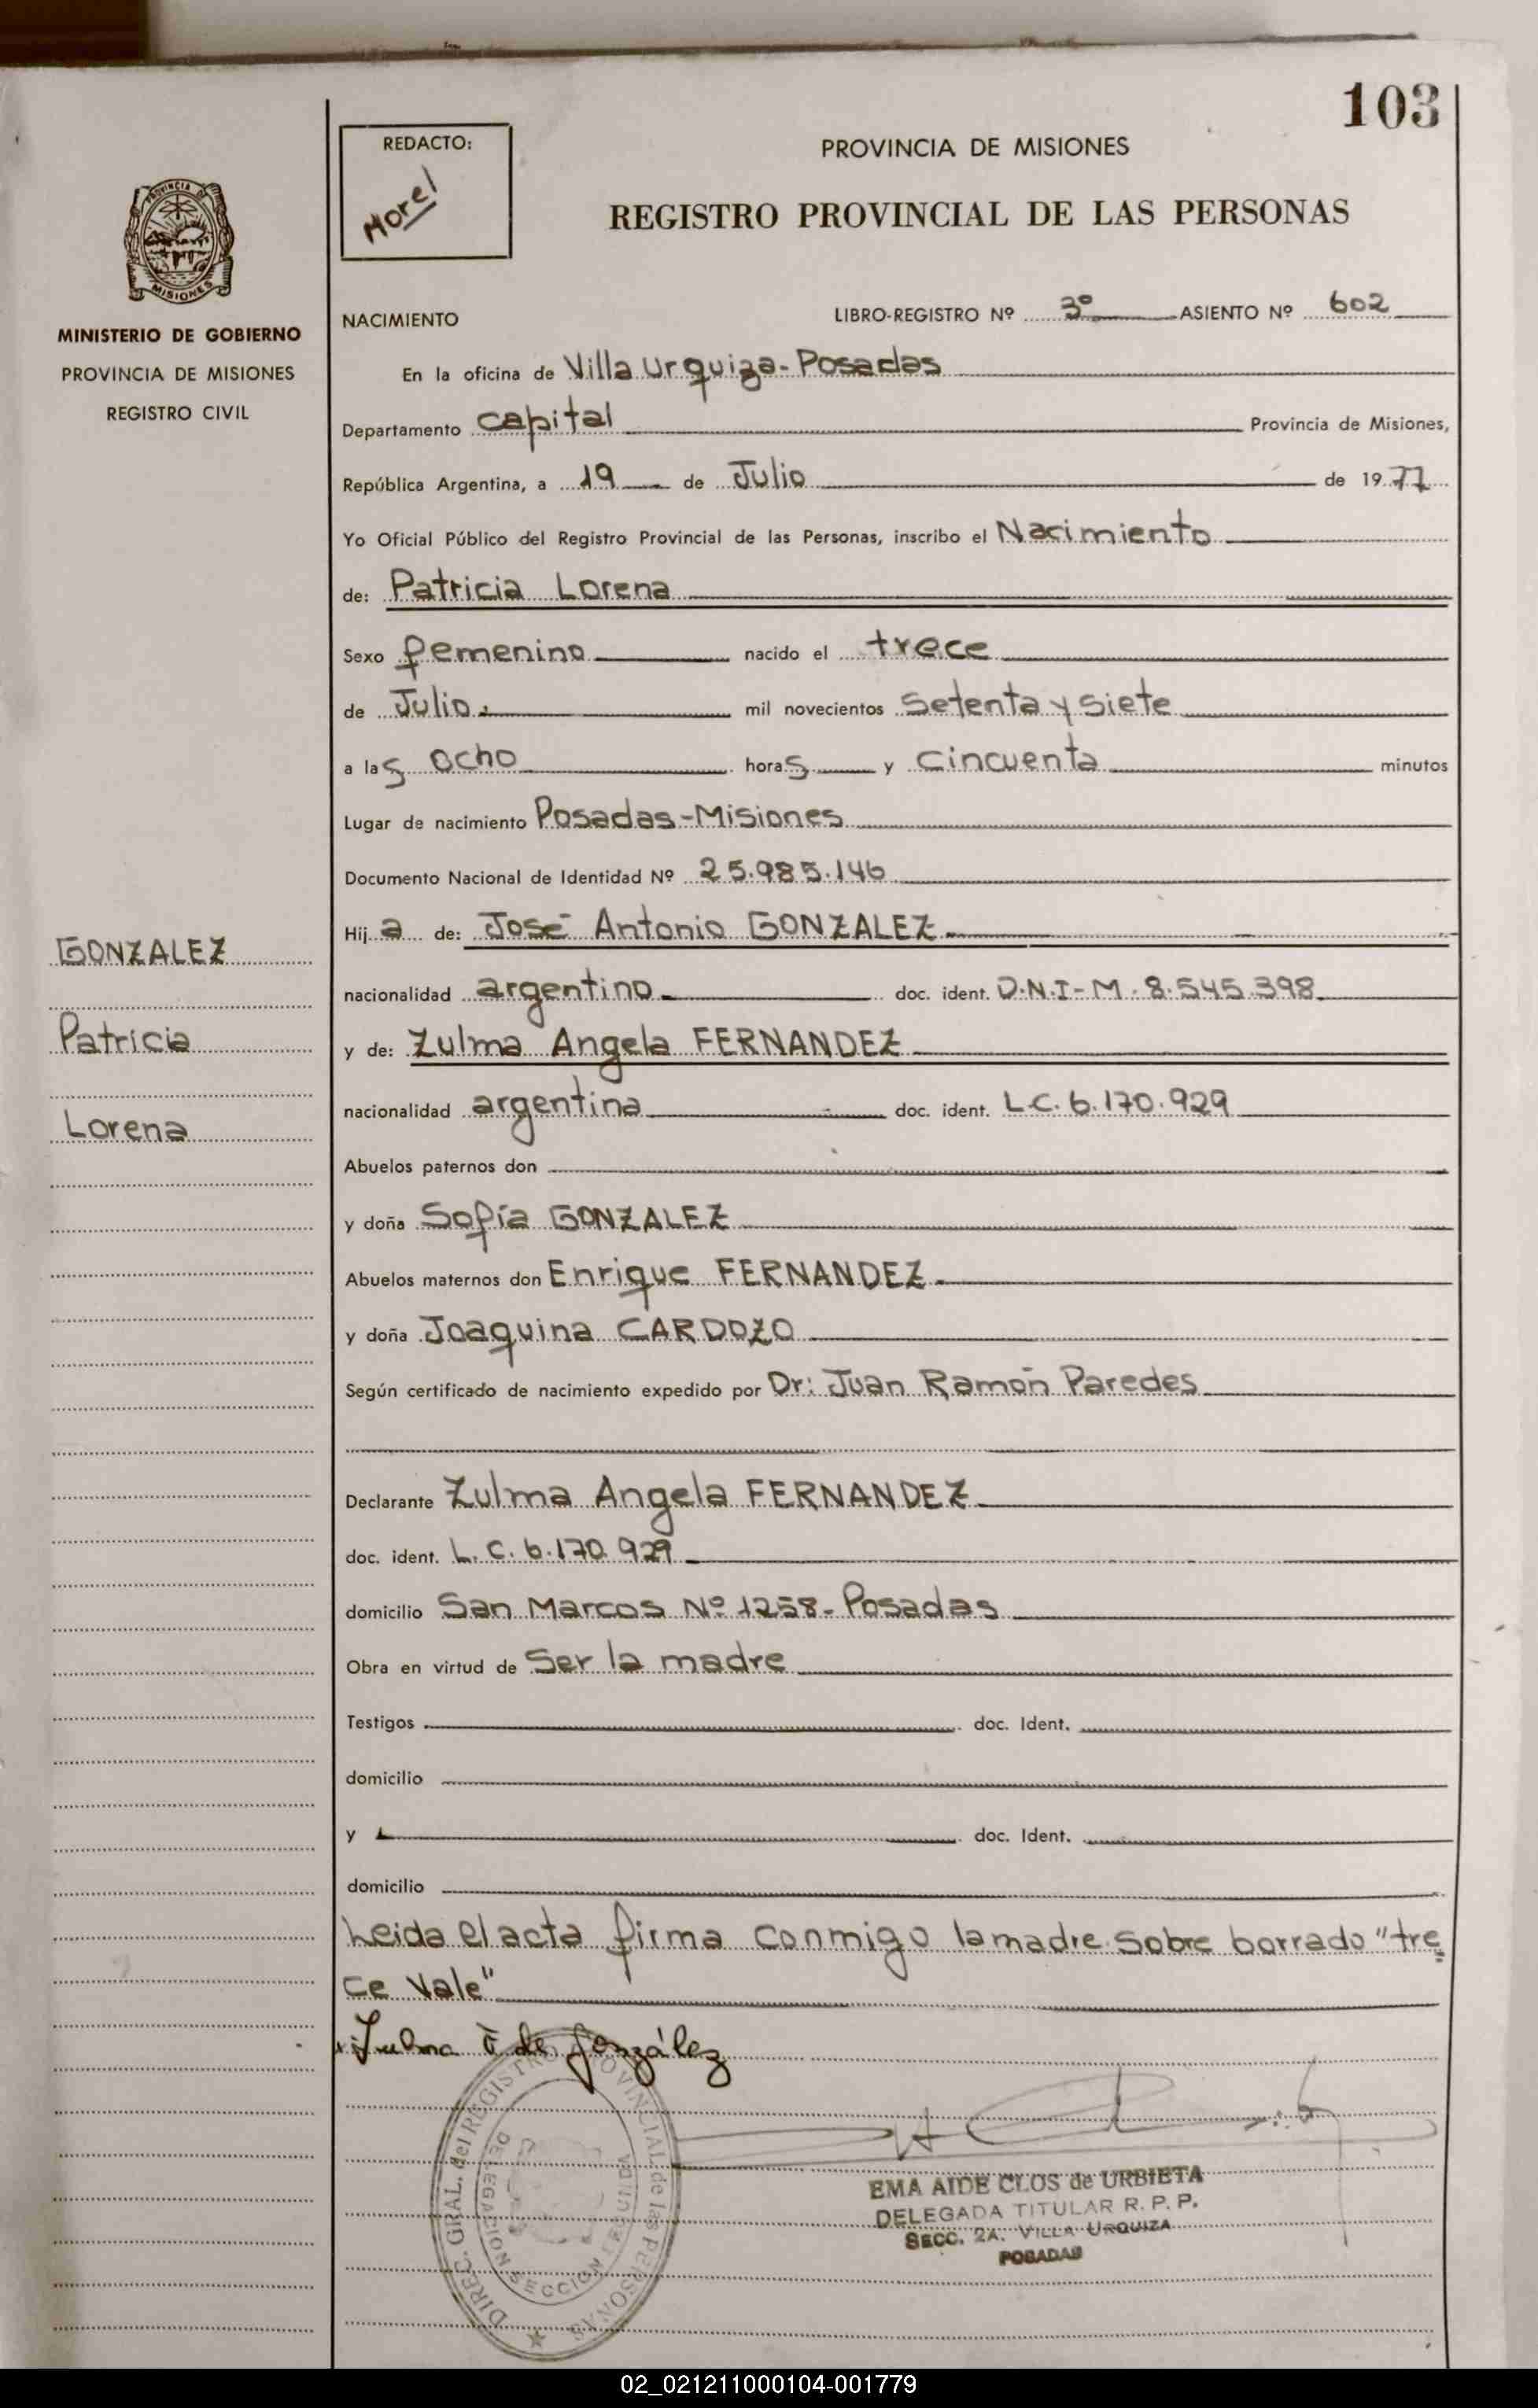 103
REDACTO:
Morel
PROVINCIA DE MISIONES
REGISTRO PROVINCIAL DE LAS PERSONAS
PROVINCIA DE
MISIONES
MINISTERIO DE GOBIERNO
PROVINCIA DE MISIONES
REGISTRO CIVIL
NACIMIENTO
LIBRO-REGISTRO Nº 3º ASIENTO Nº 602
En la oficina de Villa Urquiza-Posadas
Departamento capital Provincia de Misiones,
República Argentina, a 19 de Julio de 1977
Yo Oficial Público del Registro Provincial de las Personas, inscribo el Nacimiento
de: Patricia Lorena
Sexo femenino nacido el trece
de Julio mil novecientos Setenta y Siete
a las Ocho horas y Cincuenta minutos
Lugar de nacimiento Posadas-Misiones
Documento Nacional de Identidad Nº 25.985.146
Hija de: José Antonio GONZALEZ
nacionalidad argentino doc. ident. D.N.I-M.8.545.398
y de: Zulma Angela FERNANDEZ
nacionalidad argentina doc. ident. L.C.6.170.929
GONZALEZ
Patricia
Lorena
Abuelos paternos don
y doña Sofía GONZALEZ
Abuelos maternos don Enrique FERNANDEZ
y doña Joaquina CARDOZO
Según certificado de nacimiento expedido por Dr: Juan Ramón Paredes
Declarante Zulma Angela FERNANDEZ
doc. ident. L.C.6.170.929
domicilio San Marcos Nº 1258-Posadas
Obra en virtud de Ser la madre
Testigos doc. Ident.
domicilio
y doc. Ident.
domicilio
Leida el acta firma conmigo la madre sobre borrado "tre
ce Vale"
Zulma F de González
DIREC. GRAL. del REGISTRO PROVINCIAL de las PERSONAS
DELEGACION SECCION
EMA AIDE CLOS de URBIETA
DELEGADA TITULAR R. P. P.
SECC. 2A. VILLA URQUIZA
POSADAS
02_021211000104-001779